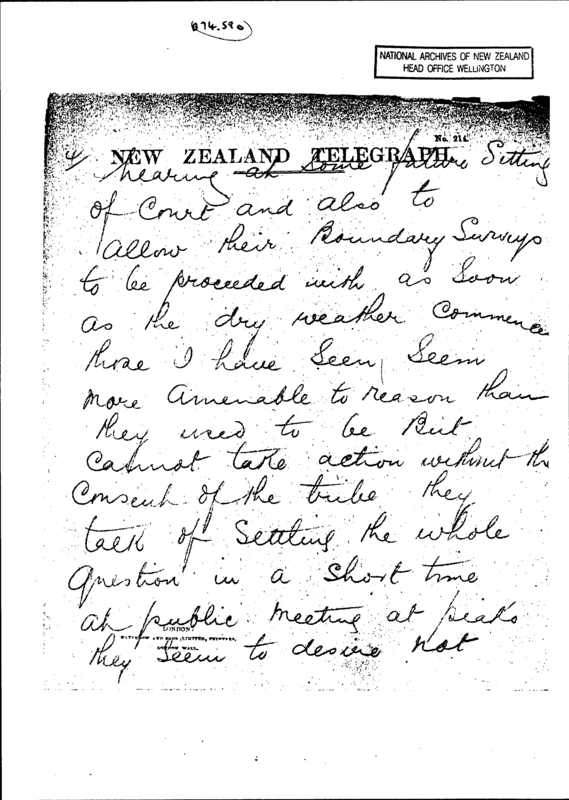 (874.590)
NATIONAL ARCHIVES OF NEW ZEALAND
HEAD OFFICE WELLINGTON
No. 214.
4/ NEW ZEALAND TELEGRAPH.
hearing at some future Sitting
of Court and also to
allow their Boundary Surveys
to be proceeded with as Soon
as the dry weather Commence
those I have Seen Seem
more amenable to reason than
they used to be But
Cannot take action without the
Consent of the tribe they
talk of Settling the whole
question in a Short time
at public meeting at
LONDON:
they Seem to desire not